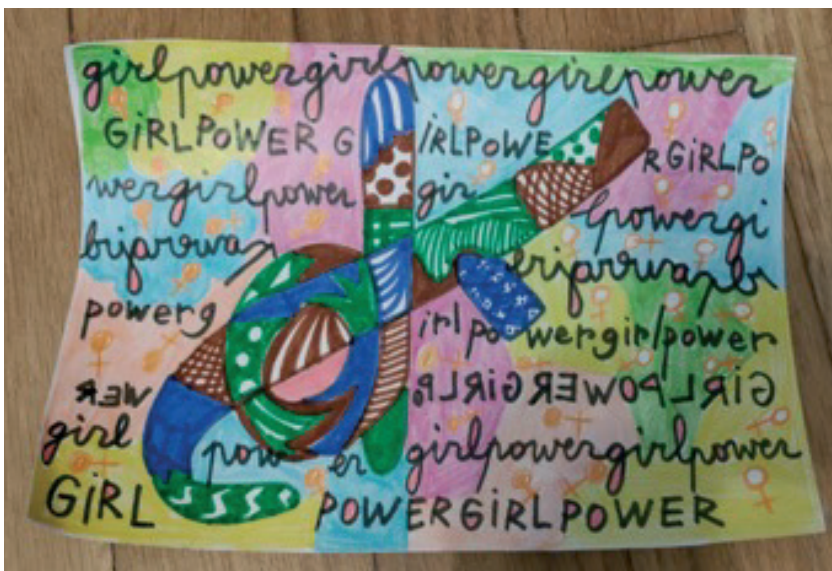 girlpowergirlpowergirlpower
GiRLPOWER G iRLPOWE RGiRLPO
wergirlpower gir lpowergi
powerg irlpo wergirlpower
GiRLPOWERGiRLPO WER
girl pow er girlpowergirlpower
GiRL POWERGiRLPOWER